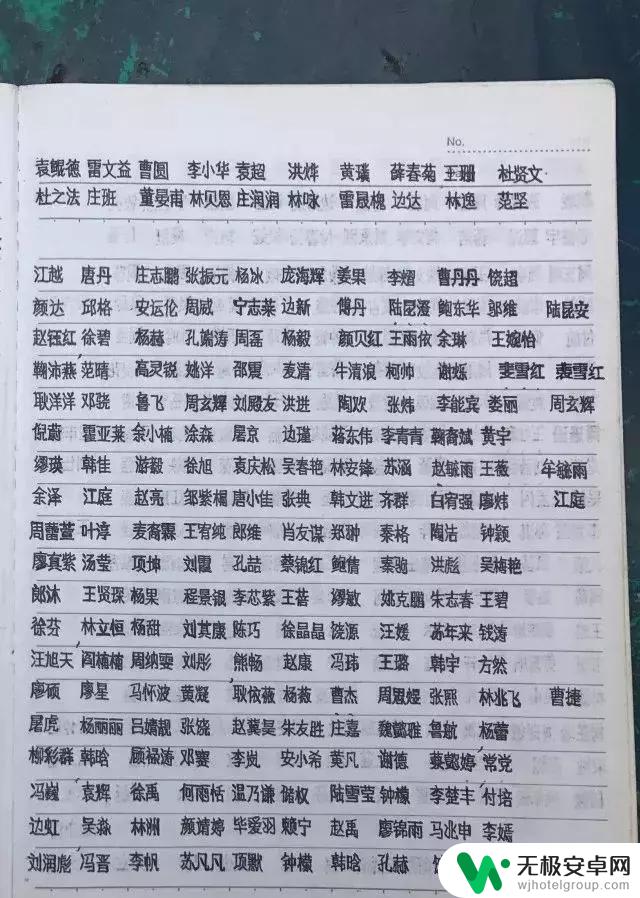 No.
袁鲲德 雷文益 曹圆 李小华 袁超 洪烨 黄璞 薛春菊 王珊 杜贤文
杜之法 庄班 董晏甫 林贝恩 庄润润 林咏 雷晟槐 边达 林逸 范坚
江越 唐丹 庄志鹏 张振元 杨冰 庞海辉 姜果 李熠 曹丹丹 饶超
颜达 邱格 安运伦 周威 宁志莱 边新 傅丹 陆昆漫 鲍东华 邬维 陆昆安
赵钰红 徐碧 杨赫 孔澍涛 周磊 杨毅 颜贝红 王雨依 余琳 王婉怡
鞠沛燕 范晴 高灵锐 姚洋 邵震 麦清 牛清浪 柯帅 谢烁 裴雪红 裴雪红
耿洋洋 邓骁 鲁飞 周玄辉 刘殿友 洪进 陶欢 张炜 李能宾 娄丽 周玄辉
倪蔚 霍亚莱 余小楠 涂森 屠京 边瑾 蒋东伟 李青青 鞠裔斌 黄宇
缪瑛 韩佳 游毅 徐旭 袁庆松 吴春艳 林安锋 苏涵 赵毓雨 王薇 牟毓雨
金泽 江庭 赵亮 邹紫楣 唐小佳 张典 韩文进 齐群 白宥强 廖炜 江庭
周蕾萱 叶淳 麦裔霖 王宥纯 郎维 肖友谋 郑翀 秦格 陶洁 钟颖
廖真紫 汤莹 项坤 刘霞 孔喆 蔡锦红 鲍倩 秦驰 洪彪 吴梅艳
郎沐 王贤琛 杨果 程景银 李芯紫 王菩 缪敏 姚克鹏 朱志春 王碧
徐芬 林立恒 杨甜 刘其康 陈巧 徐晶晶 饶源 汪媛 苏年来 钱涛
汪旭天 阎楠楠 周纳雯 刘彤 熊畅 赵康 冯玮 王璐 韩宇 方然
廖硕 廖星 马怀波 黄凝 耿依薇 杨薇 曹杰 周思煜 张熙 林兆飞 曹捷
屠虎 杨丽丽 吕嬉靓 张饶 赵冀昊 朱友胜 庄嘉 魏懿雅 鲁航 杨蕾
柳彩群 韩晗 顾禄涛 邓赟 李岚 安小希 黄凡 谢德 蔡懿婷 常党
冯巍 袁辉 徐禹 何雨恬 温乃谦 储权 陆雪莹 钟檬 李楚丰 付培
边虹 吴淼 林洲 颜婧婷 毕爱羽 赖宁 赵禹 廖锦雨 马兆申 李嫣
刘润彪 冯晋 李帆 苏凡凡 项默 钟檬 韩晗 孔赫
无极安卓网
wjhotelgroup.com